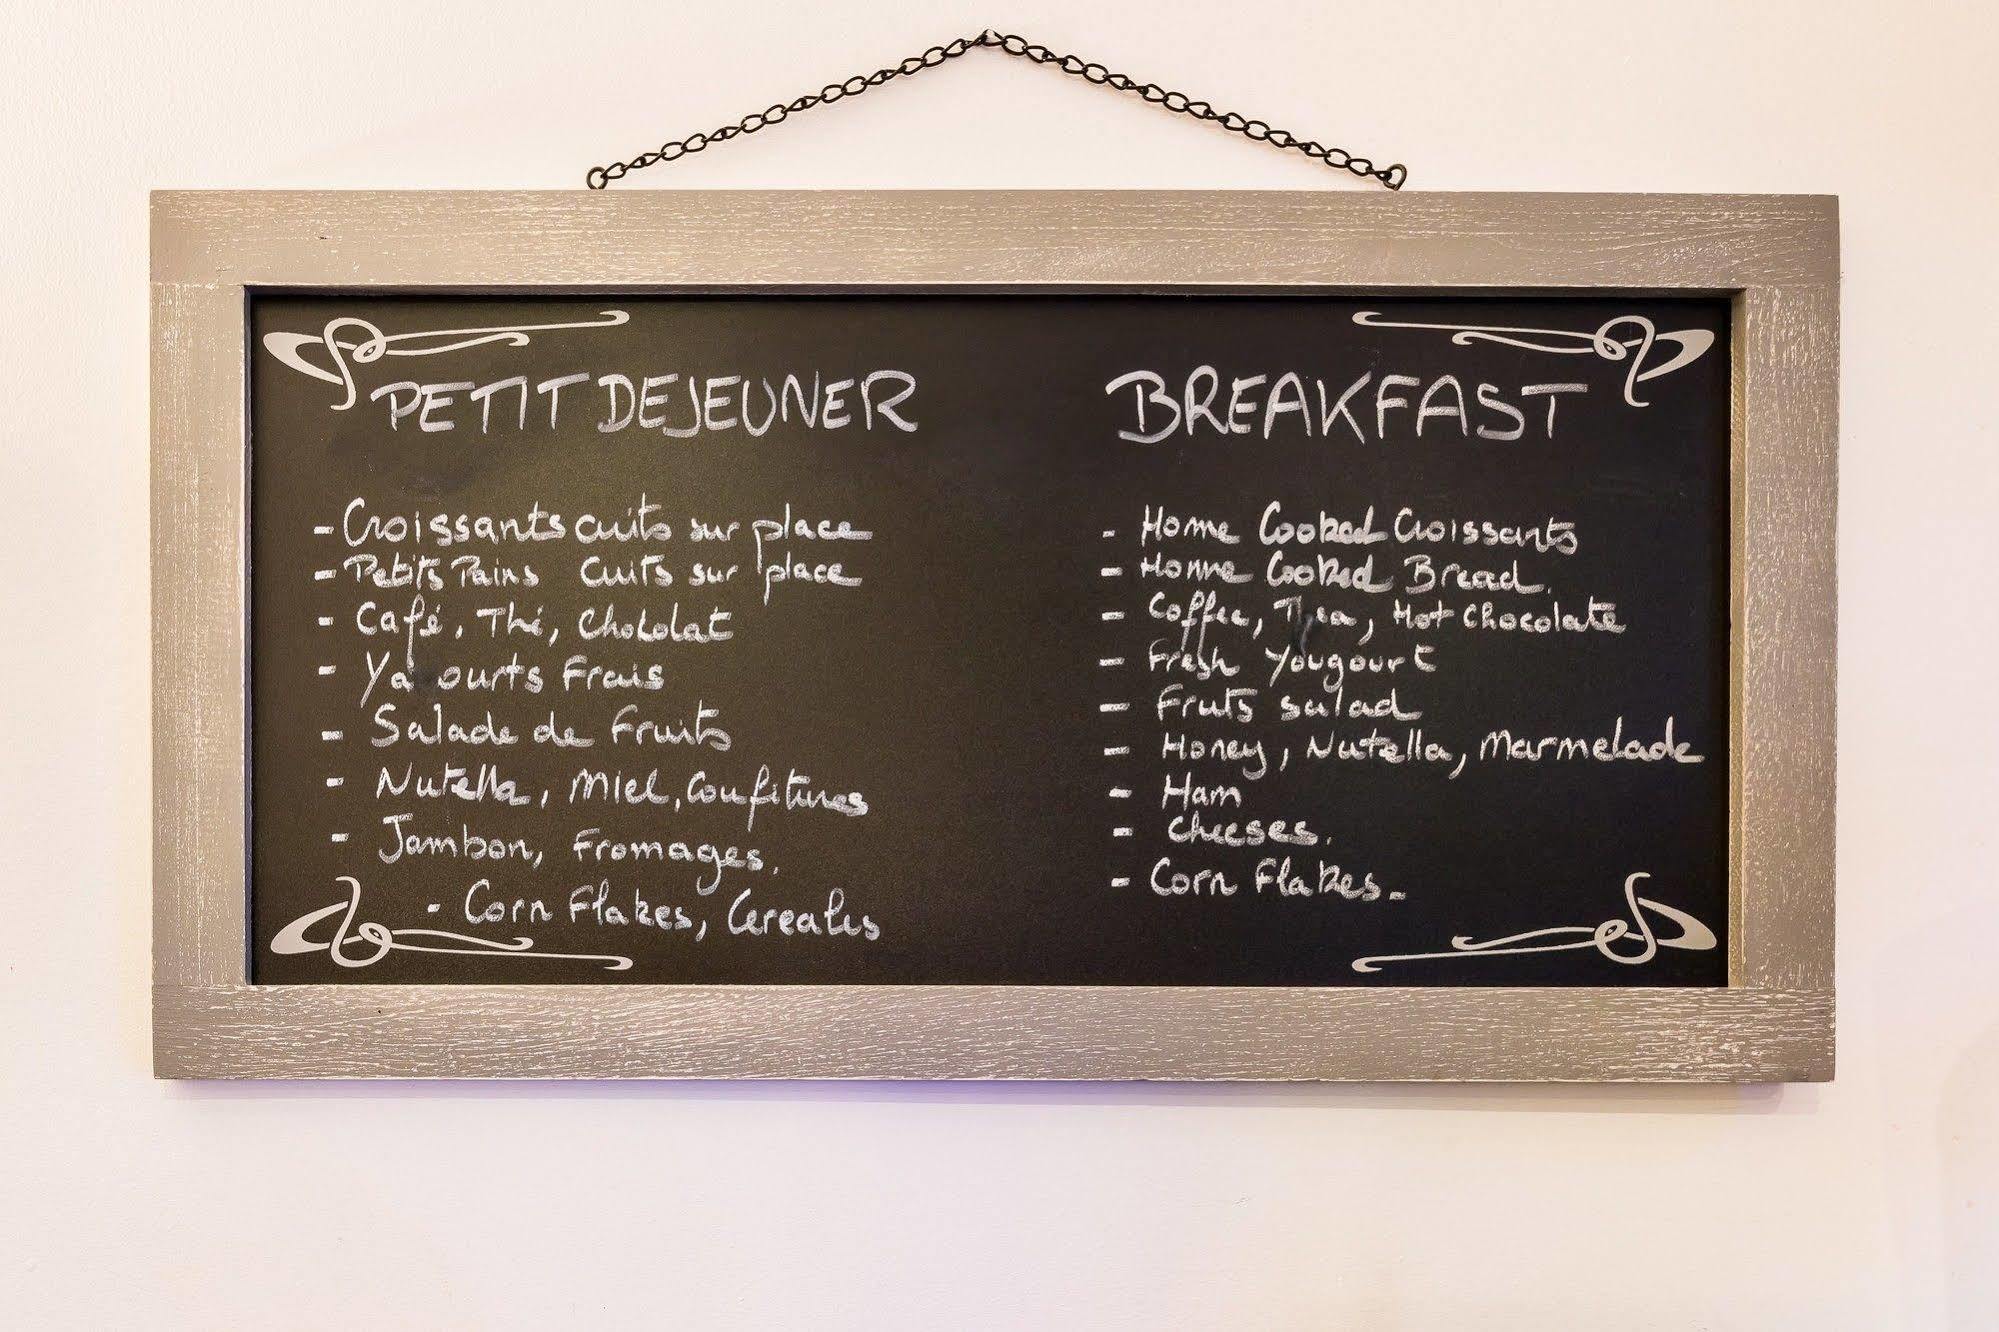 PETIT DEJEUNER
- Croissants cuits sur place
- Petits Pains cuits sur place
- Café, Thé, Chocolat
- Ya ourts Frais
- Salade de Fruits
- Nutella, Miel, Confitures
- Jambon, Fromages.
- Corn Flakes, Cereales
BREAKFAST
- Home Cooked Croissants
- Home Cooked Bread.
- Coffee, Tea, Hot Chocolate
- Fresh Yougourt
- Fruts salad
- Honey, Nutella, Marmelade
- Ham
- Cheeses.
- Corn Flakes-